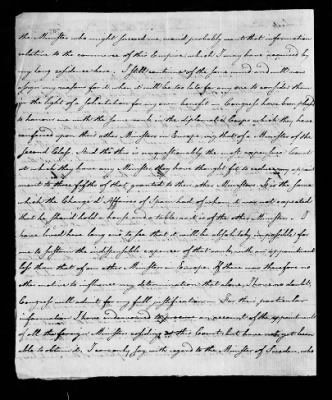 the Minister who might succeed me, would probably want that information
relative to the commerce of this Empire, which I may have acquired by
my long residence here. I still continue of the same mind and will now
assign my reasons for it, when it will be too late for any one to consider them
in the light of a solicitation for my own benefit. Congress have been pleased
to honour me with the same rank in the diplomatic Corps which they have
conferred upon their other Ministers in Europe, viz that of a Minister of the
Second Class. And tho' this is unquestionably the most expensive Court
at which they have any Minister, they have thought fit to reduce my appoint
ment to three fifths of that granted to their other Ministers. It is the same
which the Chargé d'Affaires of Spain had of whom it was not expected
that he should hold a house and a table as is of the other Ministers. I
have lived here long eno' to see that it will be absolutely impossible for
me to sustain the indispensible expences of that rank, with an appointment
less than that of any other Minister in Europe. If there was therefore no
other motive to influence my determination, that alone, I have no doubt,
Congress will admit for my full justification. For their particular
information I have endeavoured to procure an account of the appointments
of all the foreign Ministers residing at this Court, but have not yet been
able to obtain it. I can only say with regard to the Minister of Sweden, who